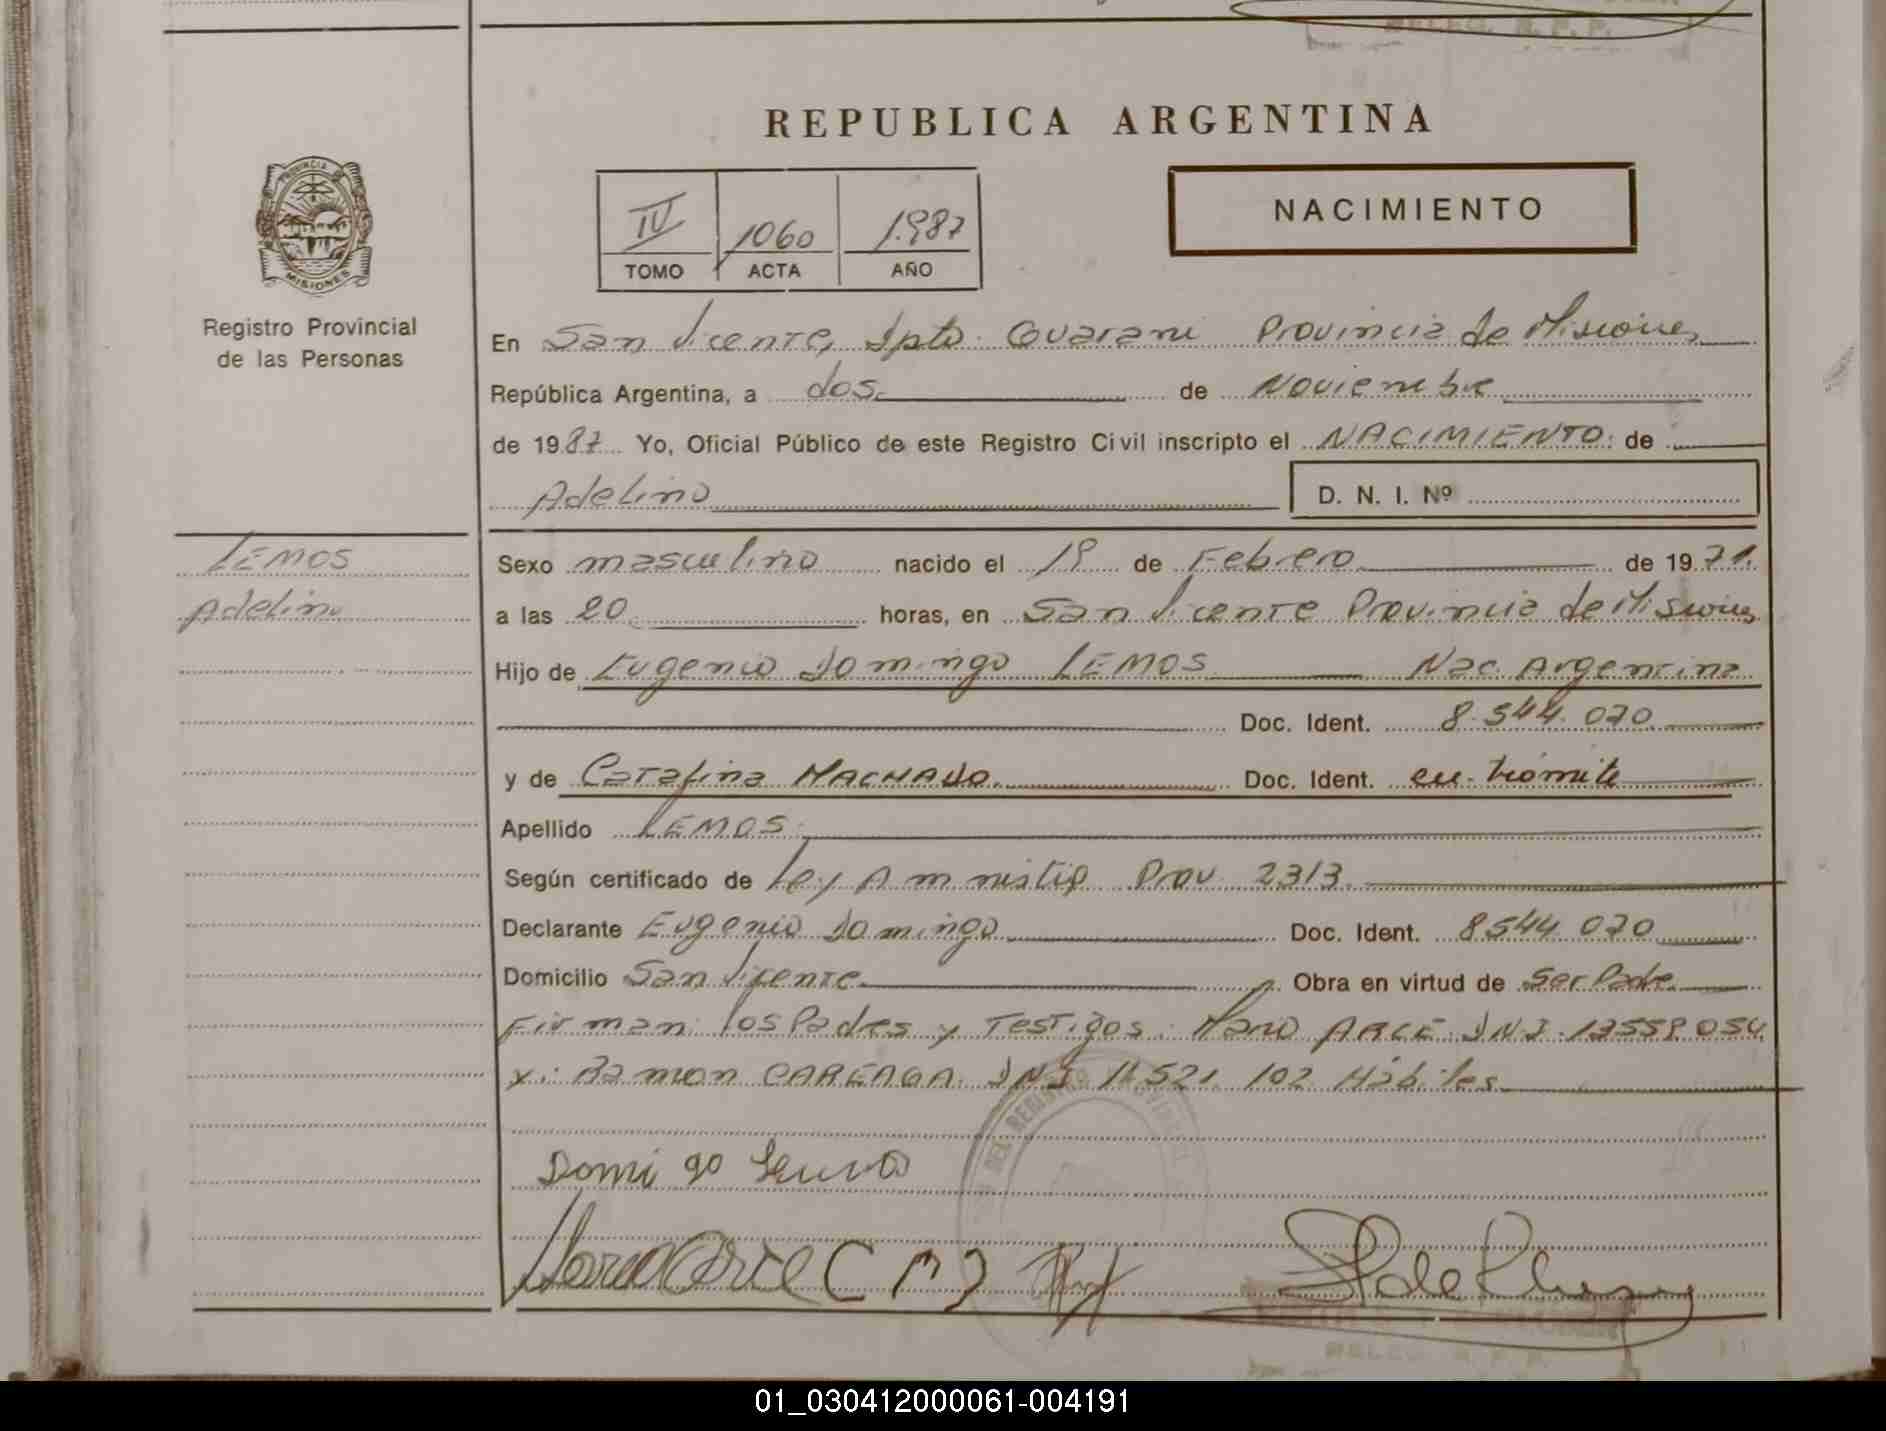 REPUBLICA ARGENTINA
PROVINCIA DE
MISIONES
Registro Provincial
de las Personas
IV 1060 1.987
TOMO ACTA AÑO
NACIMIENTO
En San Vicente, Dpto. Guarani Provincia de Misiones
República Argentina, a dos. de Noviembre
de 1987 Yo, Oficial Público de este Registro Civil inscripto el NACIMIENTO: de
Adelino
D. N. I. Nº
LEMOS
Adelino
Sexo masculino nacido el 19 de Febrero de 1971.
a las 20. horas, en San Vicente Provincia de Misiones
Hijo de Eugenio Domingo LEMOS Nac. Argentina
Doc. Ident. 8.544.070
y de Catalina MACHADO. Doc. Ident. en trámite
Apellido LEMOS.
Según certificado de Ley Amnistia Prov. 2313.
Declarante Eugenio Domingo Doc. Ident. 8544.070
Domicilio San Vicente. Obra en virtud de Ser Padre
Firman: los Padres y Testigos: ARCE DNI. 054
y: Ramon CAREAGA DNI 11.521.102 Hábiles
DEL REGISTRO
Domi go
C M
DELEG. R. P. P.
01_030412000061-004191